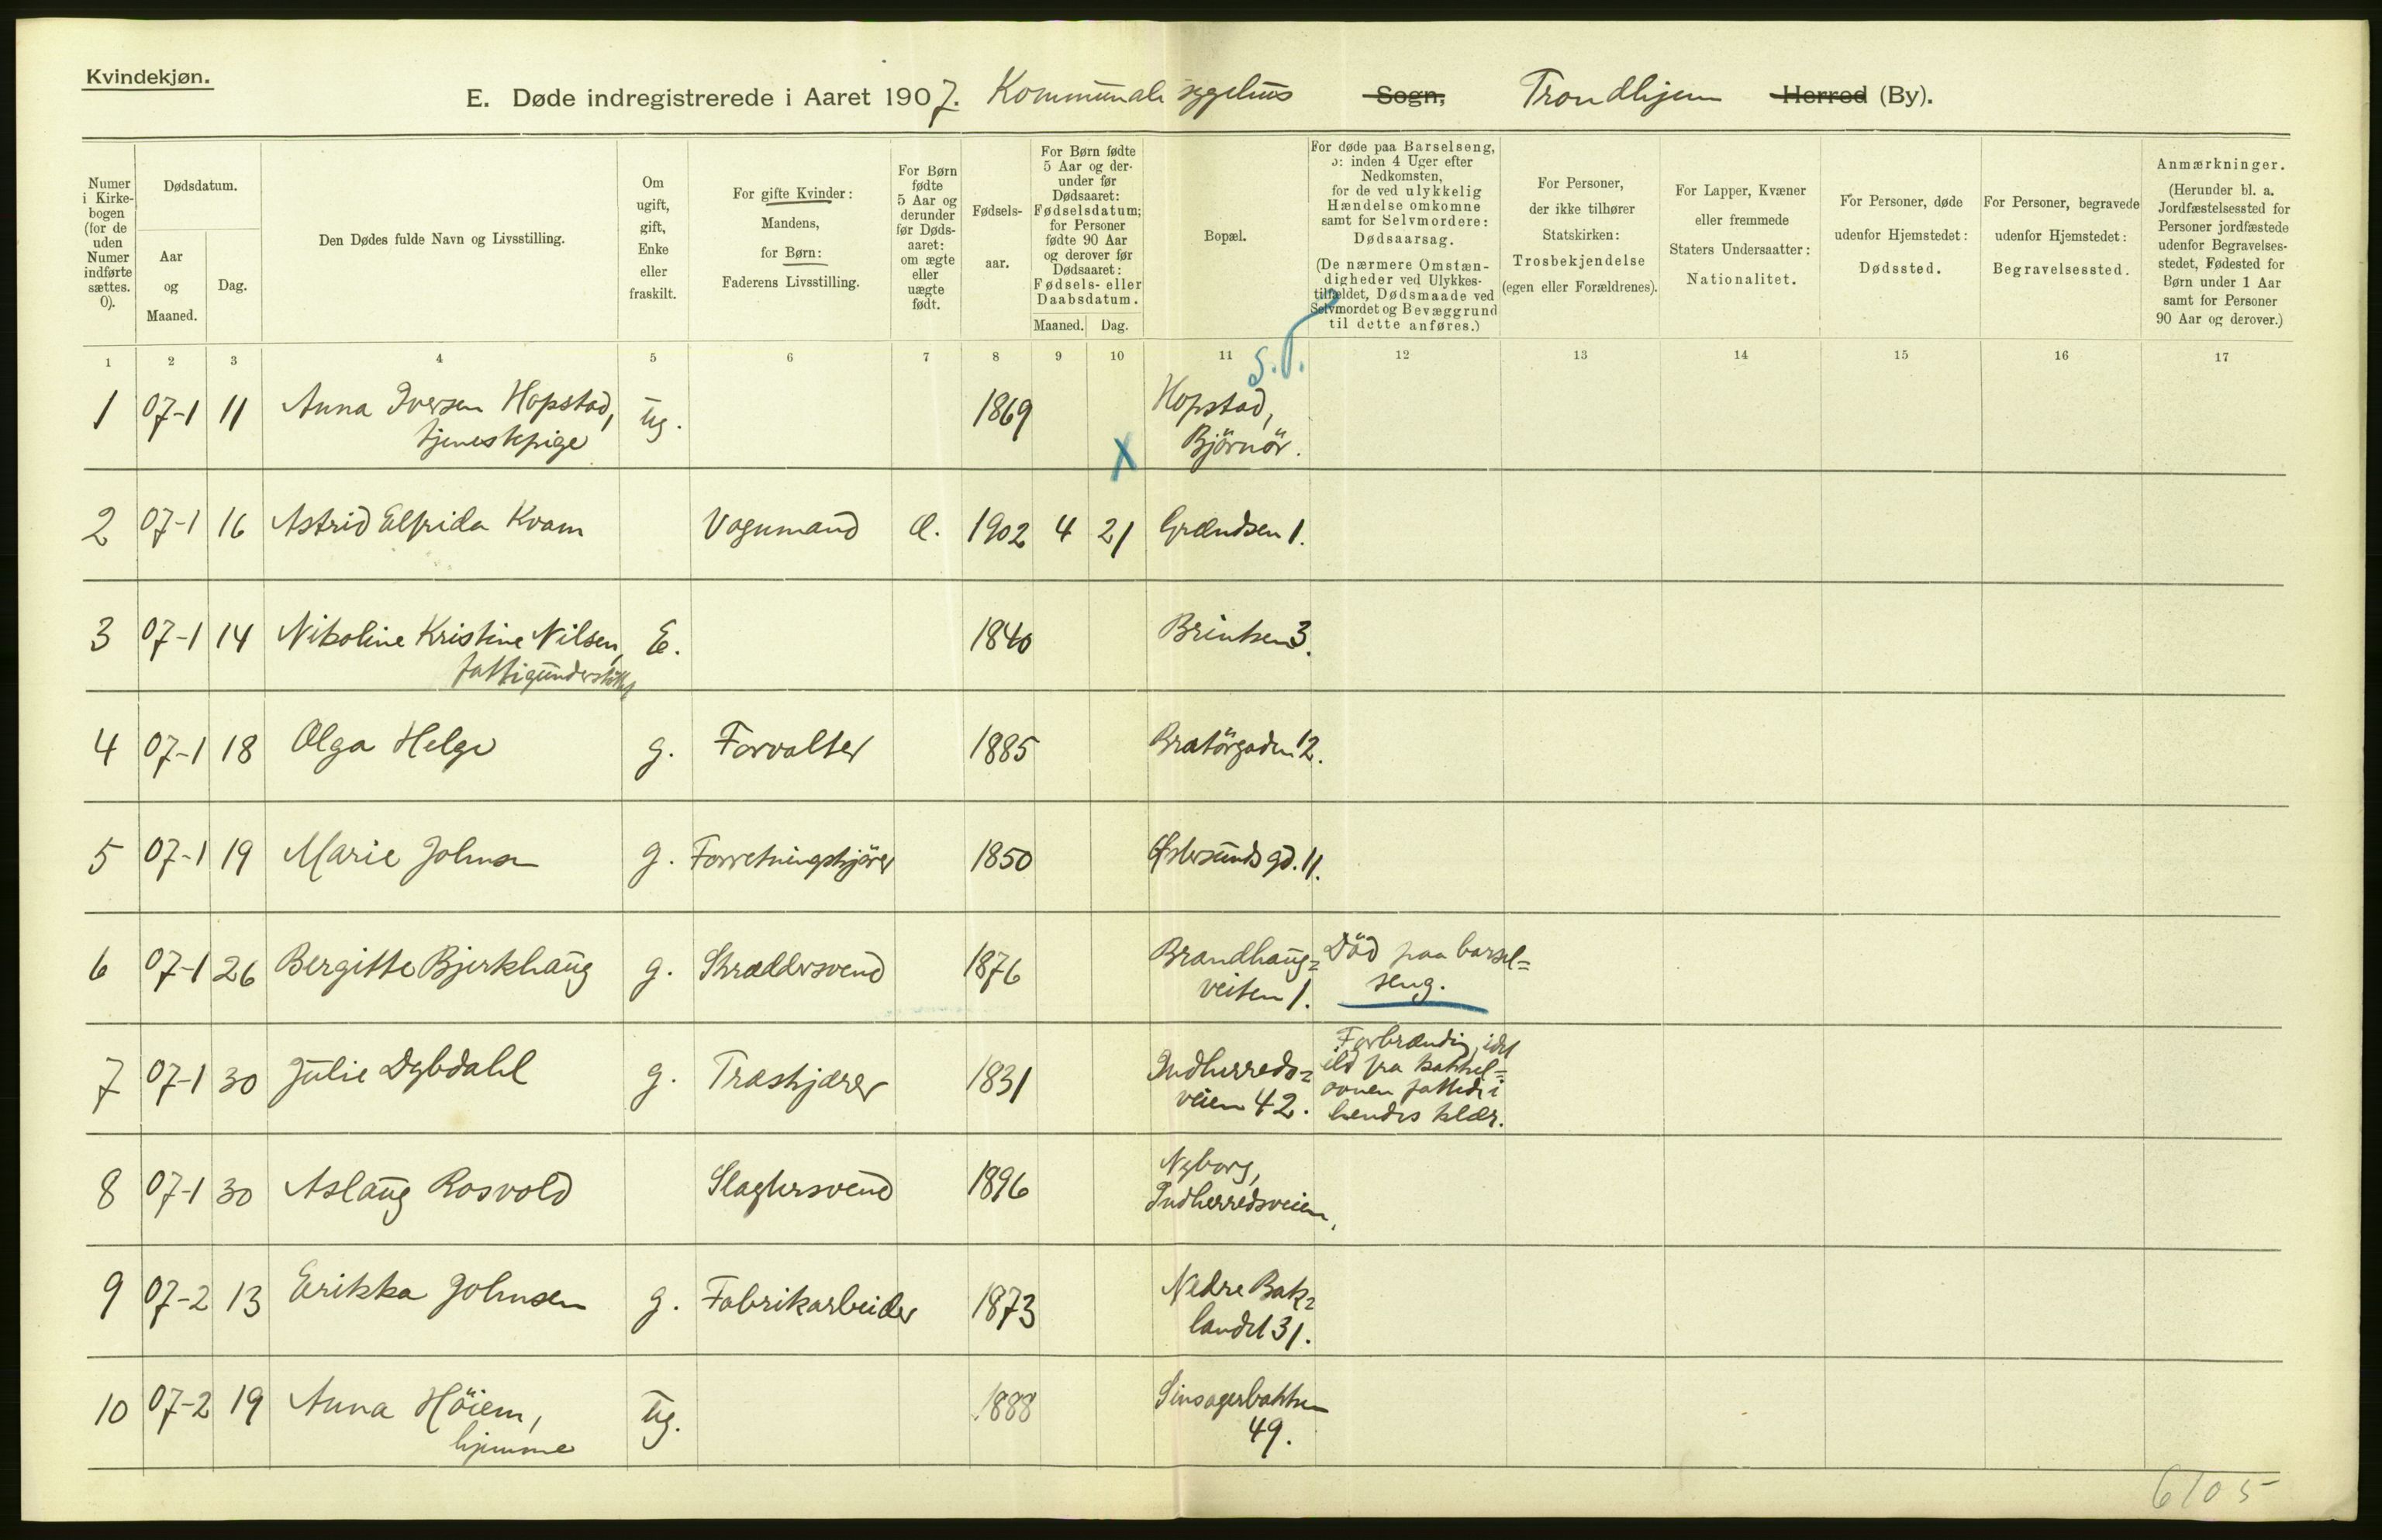 Kvindekjøn.
E. Døde indregistrerede i Aaret 1907. Kommunale sygehus Sogn, Trondhjem Herred (By).
Numer i Kirkebogen (for de uden Numer indførte sættes. 0).
Dødsdatum.
Aar og Maaned.
Dag.
Den Dødes fulde Navn og Livsstilling.
Om ugift, gift, Enke eller fraskilt.
For gifte Kvinder: Mandens, for Børn: Faderens Livsstilling.
For Børn fødte 5 Aar og derunder før Dødsaaret: om ægte eller uægte født.
Fødselsaar.
For Børn fødte 5 Aar og derunder før Dødsaaret: Fødselsdatum; for Personer fødte 90 Aar og derover før Dødsaaret: Fødsels- eller Daabsdatum.
Maaned. Dag.
Bopæl.
For døde paa Barselseng, ɔ: inden 4 Uger efter Nedkomsten, for de ved ulykkelig Hændelse omkomne samt for Selvmordere: Dødsaarsag. (De nærmere Omstændigheder ved Ulykkestilfældet, Dødsmaade ved Selvmordet og Bevæggrund til dette anføres.)
For Personer, der ikke tilhører Statskirken: Trosbekjendelse (egen eller Forældrenes).
For Lapper, Kvæner eller fremmede Staters Undersaatter: Nationalitet.
For Personer, døde udenfor Hjemstedet: Dødssted.
For Personer, begravede udenfor Hjemstedet: Begravelsessted.
Anmærkninger. (Herunder bl. a. Jordfæstelsessted for Personer jordfæstede udenfor Begravelsesstedet, Fødested for Børn under 1 Aar samt for Personer 90 Aar og derover.)
1 2 3 4 5 6 7 8 9 10 11 12 13 14 15 16 17
S.T.
1 07-1 11 Anna Iversen Hopstad, ug. 1869 Hopstad,
tjenestepige X Björnör.
2 07-1 16 Astrid Elfrida Kvam Vognmand Æ. 1902 4 21 Grændsen 1.
3 07-1 14 Nikoline Kristine Nilsen, E. 1840 Brinken 3.
fattigunderstöttet
4 07-1 18 Olga Helge g. Forvalter 1885 Bratörgaden 12.
5 07-1 19 Marie Johnsen g. Forretningskjörer 1850 Østersunds gd. 11.
6 07-1 26 Bergitte Bjerkhaug g. Skræddersvend 1876 Brandhaug= Död paa barsel=
veiten 1. seng.
7 07-1 30 Julie Dybdahl g. Træskjærer 1831 Indherreds= Forbrænding, idet
veien 42. ild fra kakkel=
ovnen fattede i
hendes klær.
8 07-1 30 Aslaug Rosvold Slagtersvend 1896 Nyborg,
Indherredsveien.
9 07-2 13 Erikka Johnsen g. Fabrikarbeider 1873 Nedre Bak=
landet 31.
10 07-2 19 Anna Höiem, ug. 1888 Sinsagerbakken
hjemme 49.
6105